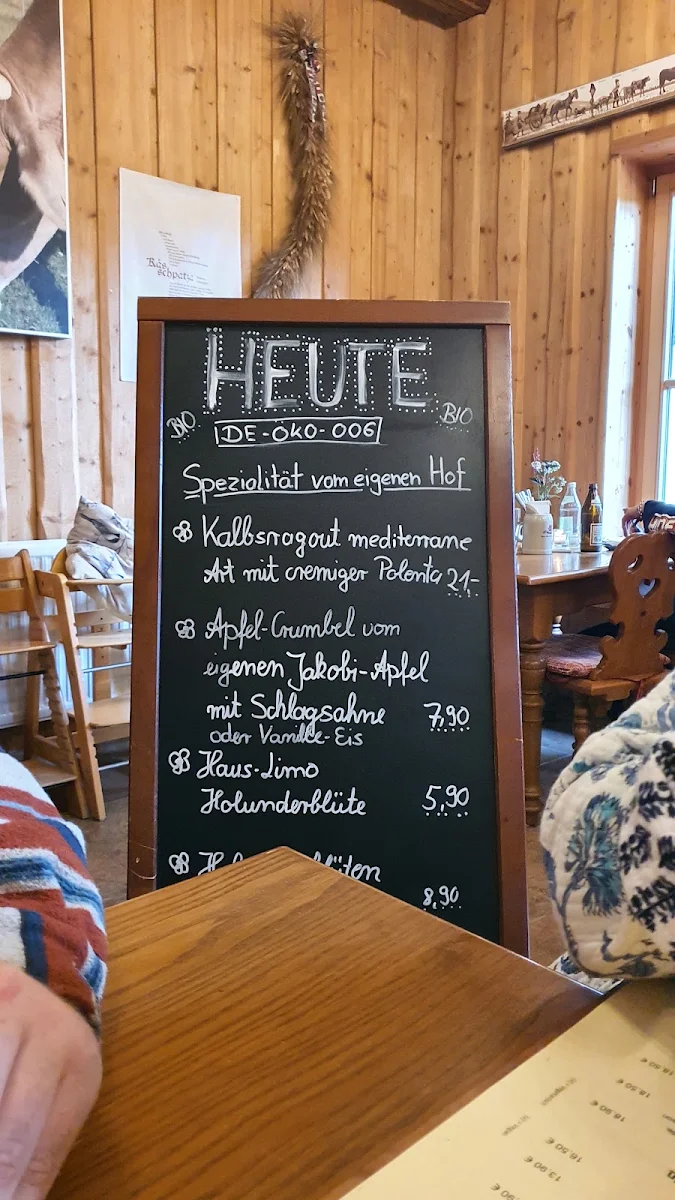 Käs
schpatza
HEUTE
BIO
BIO
DE-ÖKO-006
Spezialität vom eigenen Hof
Kalbsragout mediterrane
Art mit cremiger Polenta 21,-
Apfel-Crumbel vom
eigenen Jakobi-Apfel
mit Schlagsahne 7,90
oder Vanille-Eis
Haus-Limo
Holunderblüte 5,90
8,90
18,50 €
18,90 €
16,50 €
13,90 €